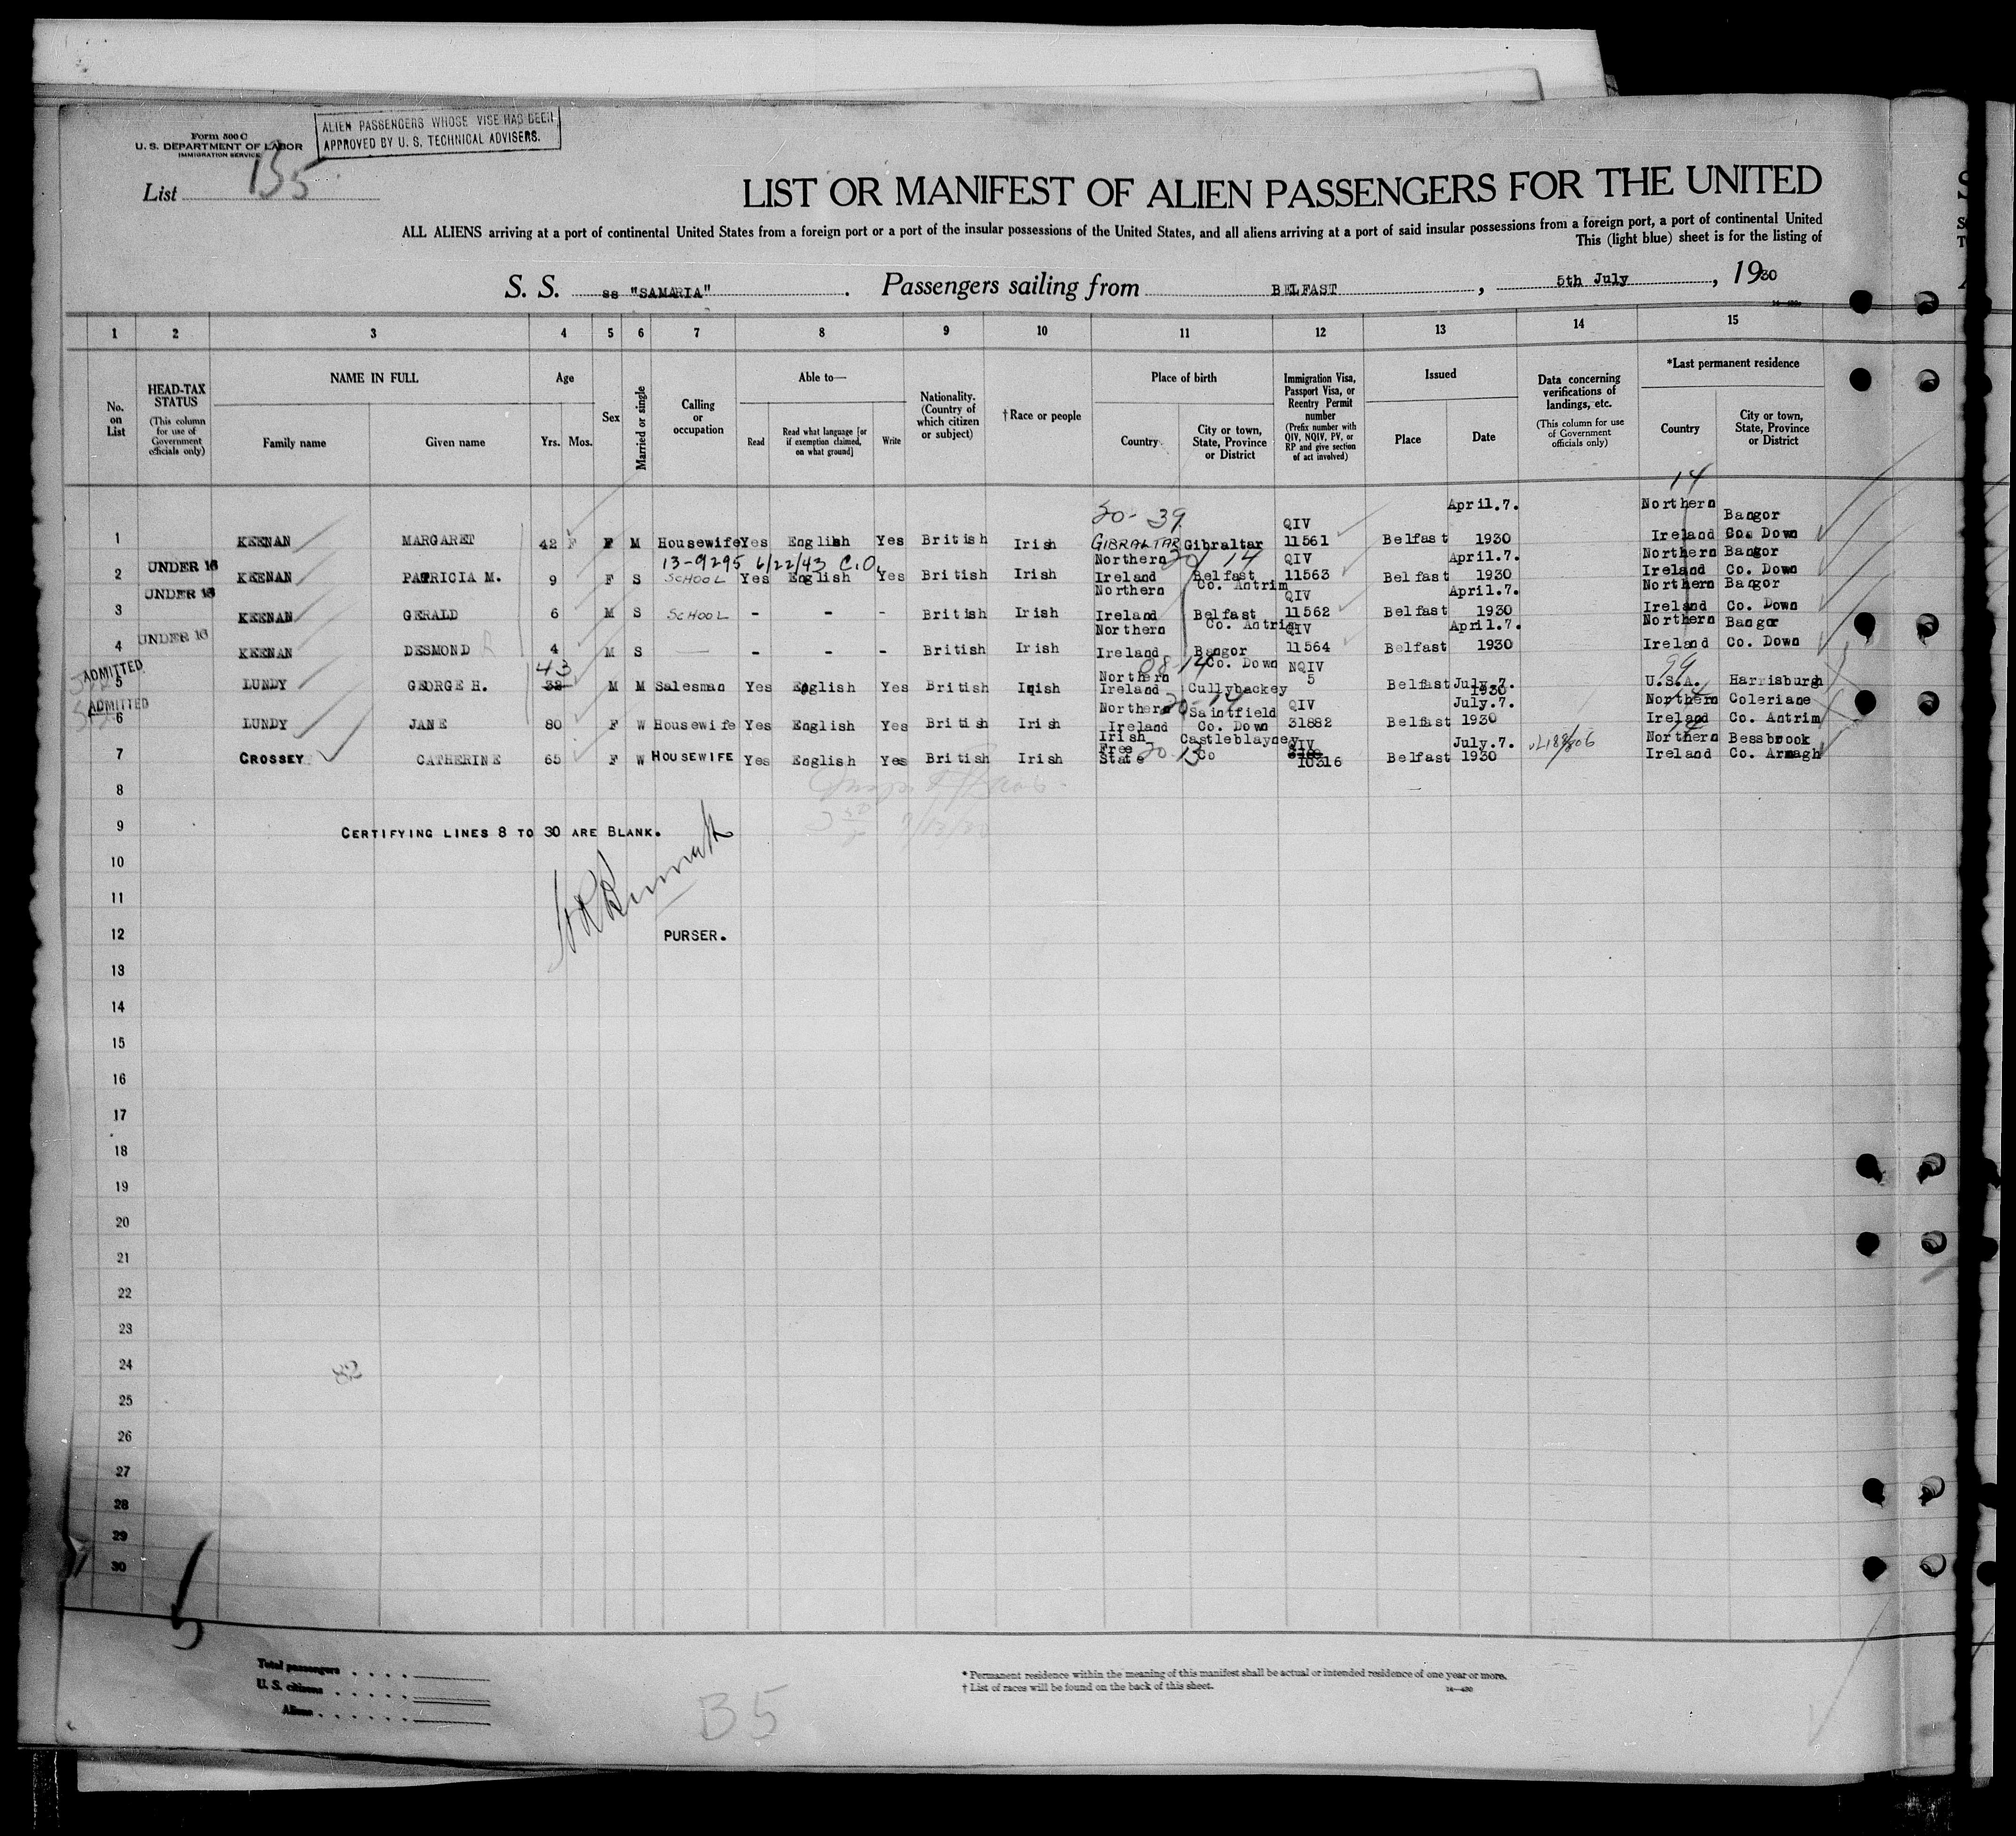 Form 500 C
U. S. DEPARTMENT OF LABOR
IMMIGRATION SERVICE
ALIEN PASSENGERS WHOSE VISE HAS BEEN
APPROVED BY U. S. TECHNICAL ADVISERS.
List
LIST OR MANIFEST OF ALIEN PASSENGERS FOR THE UNITED
ALL ALIENS arriving at a port of continental United States from a foreign port or a port of the insular possessions of the United States, and all aliens arriving at a port of said insular possessions from a foreign port, a port of continental United
This (light blue) sheet is for the listing of
S. S. ss "SAMARIA". Passengers sailing from BELFAST, 5th July, 1930
1 2 3 4 5 6 7 8 9 10 11 12 13 14 15
No. on List
HEAD-TAX STATUS (This column for use of Government officials only)
NAME IN FULL
Family name Given name
Age
Yrs. Mos.
Sex
Married or single
Calling or occupation
Able to—
Read Read what language [or if exemption claimed, on what ground] Write
Nationality. (Country of which citizen or subject)
† Race or people
Place of birth
Country City or town, State, Province or District
Immigration Visa, Passport Visa, or Reentry Permit number (Prefix number with QIV, NQIV, PV, or RP and give section of act involved)
Issued
Place Date
Data concerning verifications of landings, etc. (This column for use of Government officials only)
*Last permanent residence
Country City or town, State, Province or District
14
20-39
1 KEENAN MARGARET 42 F M Housewife Yes English Yes British Irish GIBRALTAR Gibraltar QIV 11561 Belfast April.7. 1930 Northern Ireland Bangor Co. Down
13-9295 6/22/43 C.O.
2 UNDER 16 KEENAN PATRICIA M. 9 F S SCHOOL Yes English Yes British Irish Northern Ireland Belfast Co. Antrim QIV 11563 Belfast April.7. 1930 Northern Ireland Bangor Co. Down
3 UNDER 16 KEENAN GERALD 6 M S SCHOOL - - - British Irish Northern Ireland Belfast Co. Antrim QIV 11562 Belfast April.7. 1930 Northern Ireland Bangor Co. Down
4 UNDER 16 KEENAN DESMOND 4 M S - - - British Irish Northern Ireland Bangor Co. Down QIV 11564 Belfast April.7. 1930 Northern Ireland Bangor Co. Down
43 99
5 ADMITTED LUNDY GEORGE H. 32 M M Salesman Yes English Yes British Irish Northern Ireland Cullybackey NQIV 5 Belfast July.7. 1930 U.S.A. Harrisburgh
6 ADMITTED LUNDY JANE 80 F W Housewife Yes English Yes British Irish Northern Ireland Saintfield Co. Down QIV 31882 Belfast July.7. 1930 Northern Ireland Coleriane Co. Antrim
7 CROSSEY CATHERINE 65 F W HOUSEWIFE Yes English Yes British Irish Irish Free State Castleblayney Co QIV 10316 Belfast July.7. 1930 Northern Ireland Bessbrook Co. Armagh
8
9 CERTIFYING LINES 8 TO 30 ARE BLANK.
10
11
12 PURSER.
13
14
15
16
17
18
19
20
21
22
23
24
25
26
27
28
29
30
Total passengers
U. S. citizens
Aliens
B5
* Permanent residence within the meaning of this manifest shall be actual or intended residence of one year or more.
† List of races will be found on the back of this sheet.